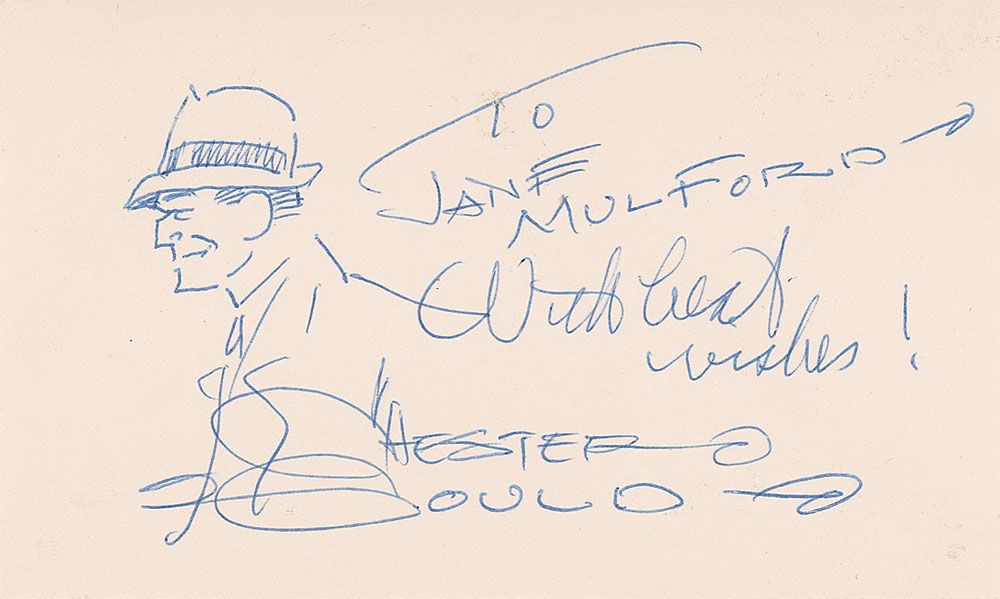 TO
JANE
MULFORD
With best
wishes!
CHESTER
GOULD